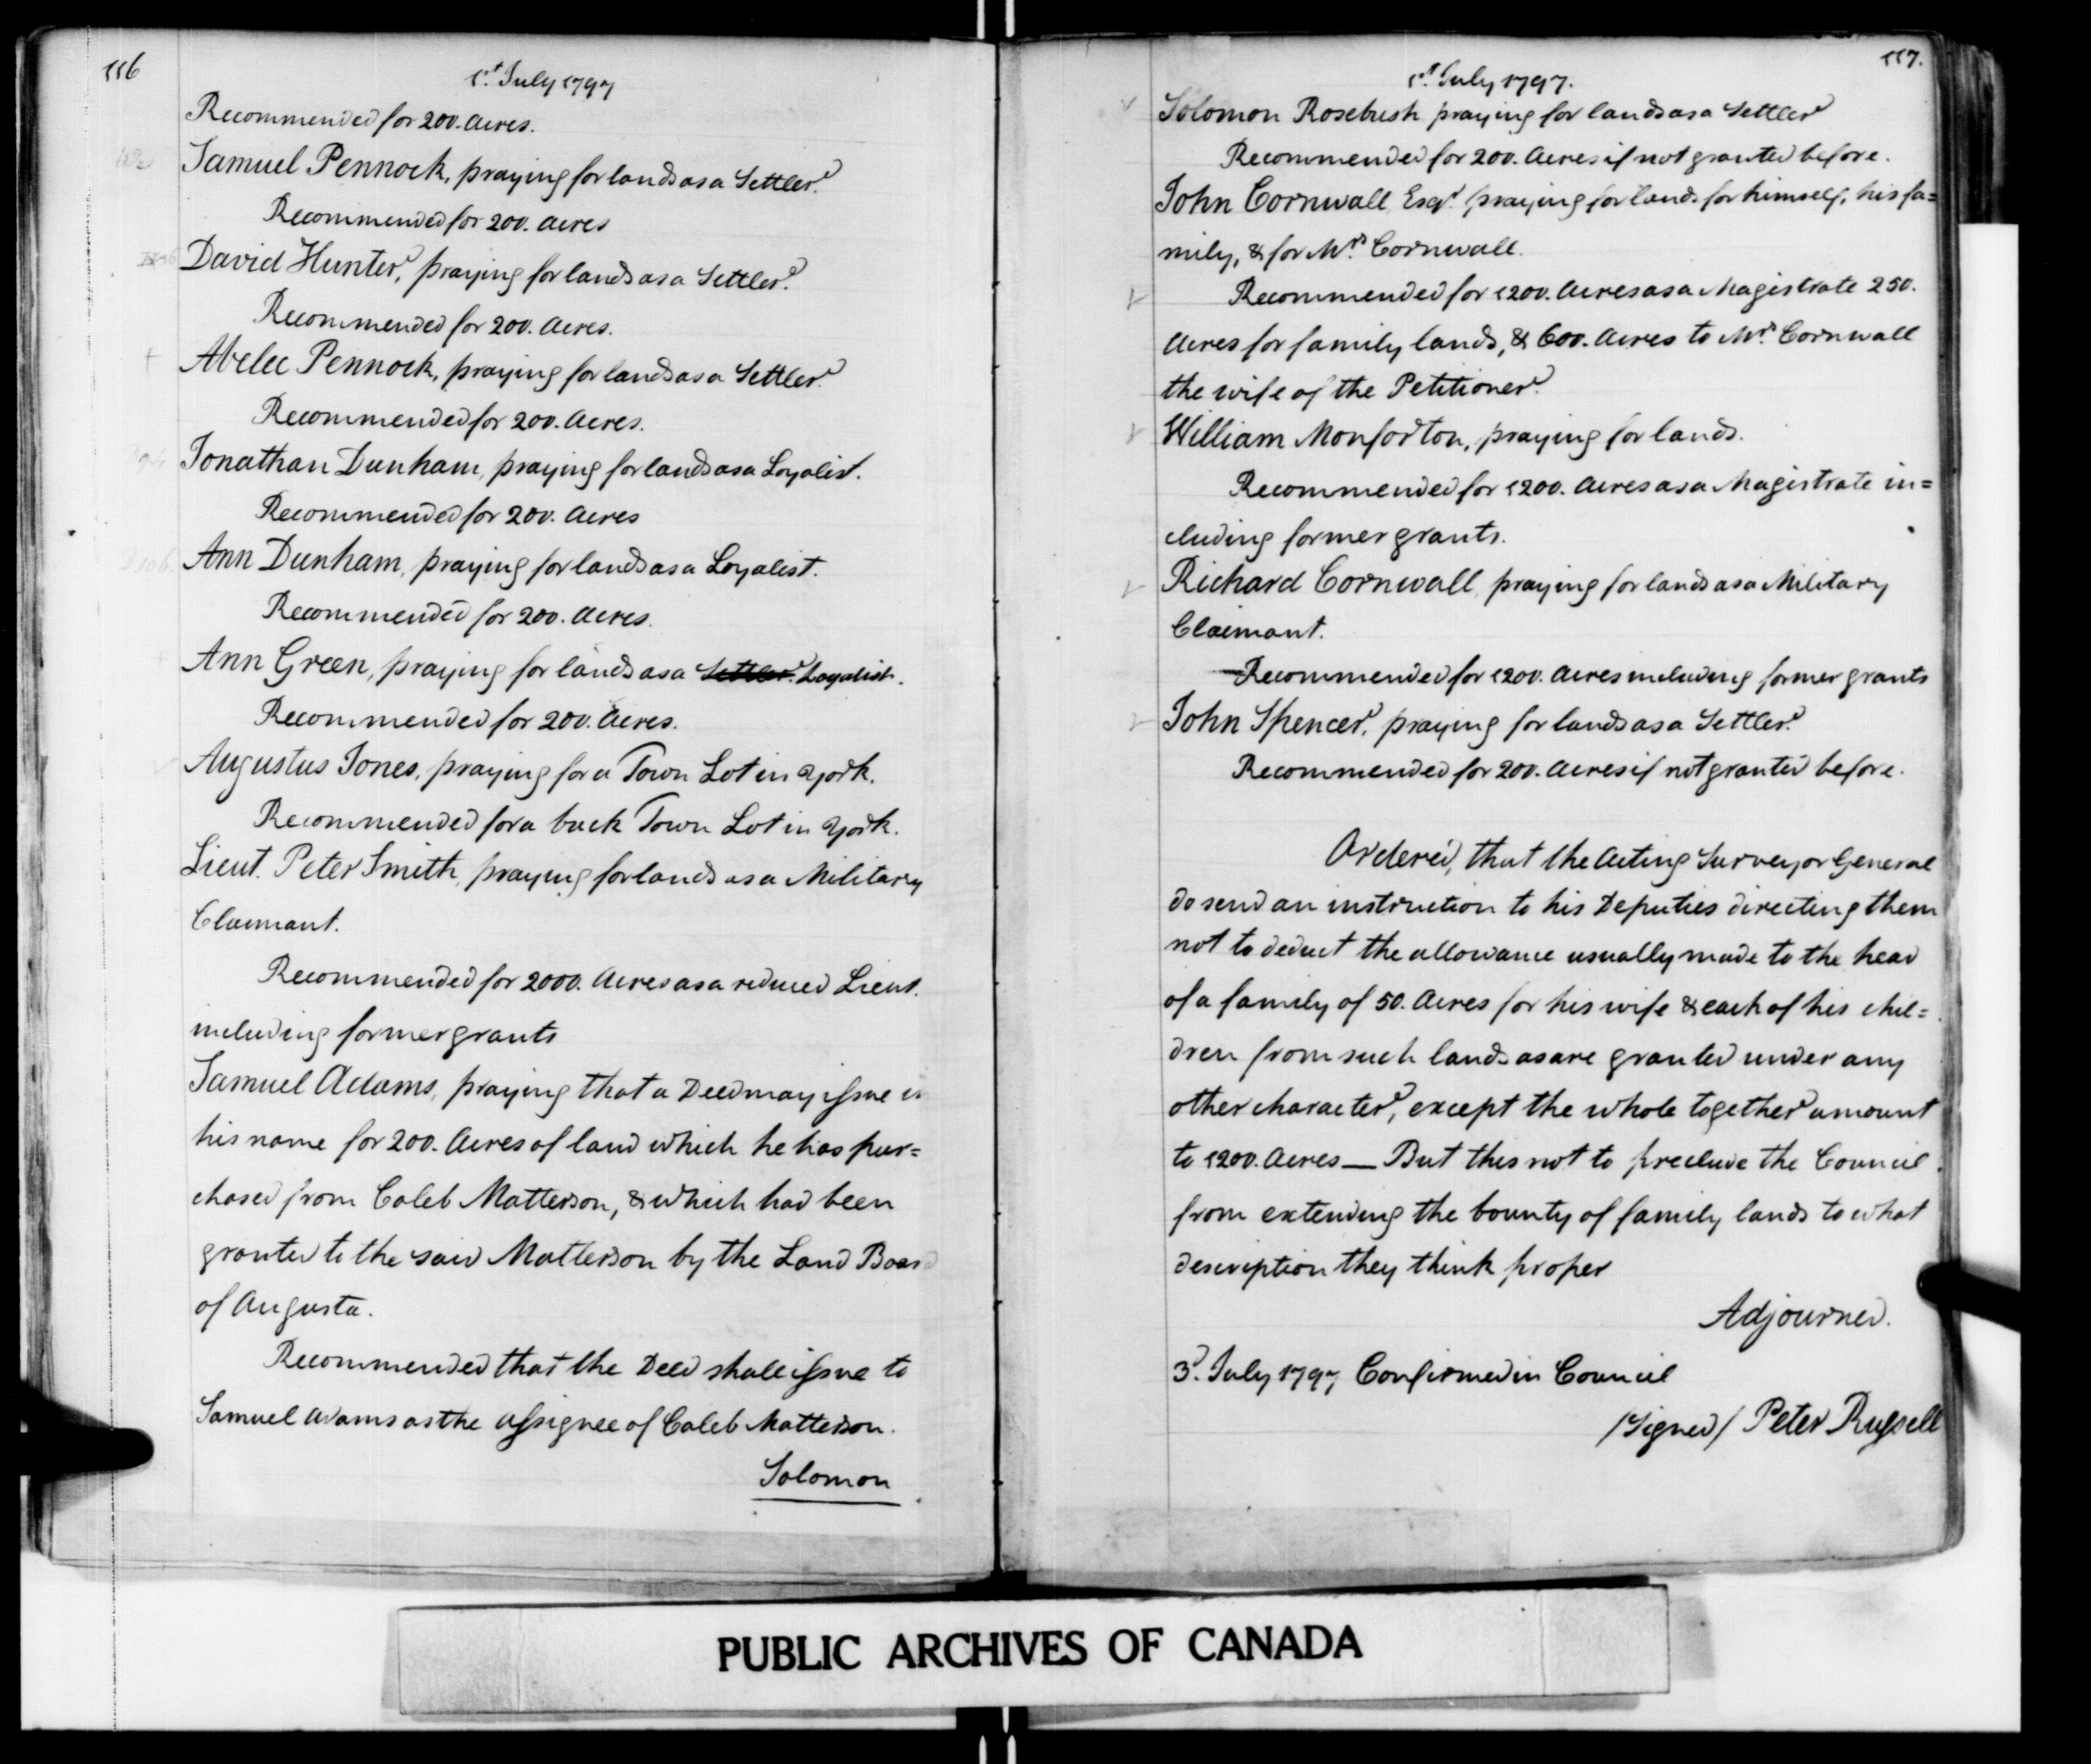 116
1st. July 1797
Recommended for 200. Acres.
Samuel Pennock, praying for lands as a Settler.
Recommended for 200. Acres
David Hunter, praying for lands as a Settler.
Recommended for 200. Acres.
Abelee Pennock, praying for lands as a Settler.
Recommended for 200. Acres.
Jonathan Dunham, praying for lands as a Loyalist.
Recommended for 200. Acres
Ann Dunham, praying for lands as a Loyalist.
Recommended for 200. Acres.
Ann Green, praying for lands as a Settler. Loyalist.
Recommended for 200. Acres.
Augustus Jones, praying for a Town Lot in York.
Recommended for a back Town Lot in York.
Lieut. Peter Smith, praying for lands as a Military
Claimant.
Recommended for 2000. Acres as a reduced Lieut.
including former grants
Samuel Adams, praying that a Deed may issue in
his name for 200. Acres of land which he has pur=
chased from Caleb Matterson, & which had been
granted to the said Matterson by the Land Board
of Augusta.
Recommended that the Deed shall issue to
Samuel Adams as the assignee of Caleb Matterson.
Solomon
117.
1st. July 1797.
Solomon Rosebush praying for lands as a Settler
Recommended for 200. Acres if not granted before.
John Cornwall Esqr. praying for lands for himself, his fa=
mily, & for Mrs. Cornwall.
Recommended for 1200. Acres as a Magistrate 250.
Acres for family lands, & 600. Acres to Mrs. Cornwall
the wife of the Petitioner.
William Monforton, praying for lands.
Recommended for 1200. Acres as a Magistrate in=
cluding former grants.
Richard Cornwall, praying for lands as a Military
Claimant.
Recommended for 1200. Acres including former grants
John Spencer, praying for lands as a Settler.
Recommended for 200. Acres if not granted before.
Ordered, that the Acting Surveyor General
do send an instruction to his Deputies directing them
not to deduct the allowance usually made to the head
of a family of 50. Acres for his wife & each of his chil=
dren from such lands as are granted under any
other character, except the whole together amount
to 1200. Acres — But this not to preclude the Council
from extending the bounty of family lands to what
description they think proper
Adjourned.
3d. July 1797 Confirmed in Council
/Signed/ Peter Russell
PUBLIC ARCHIVES OF CANADA